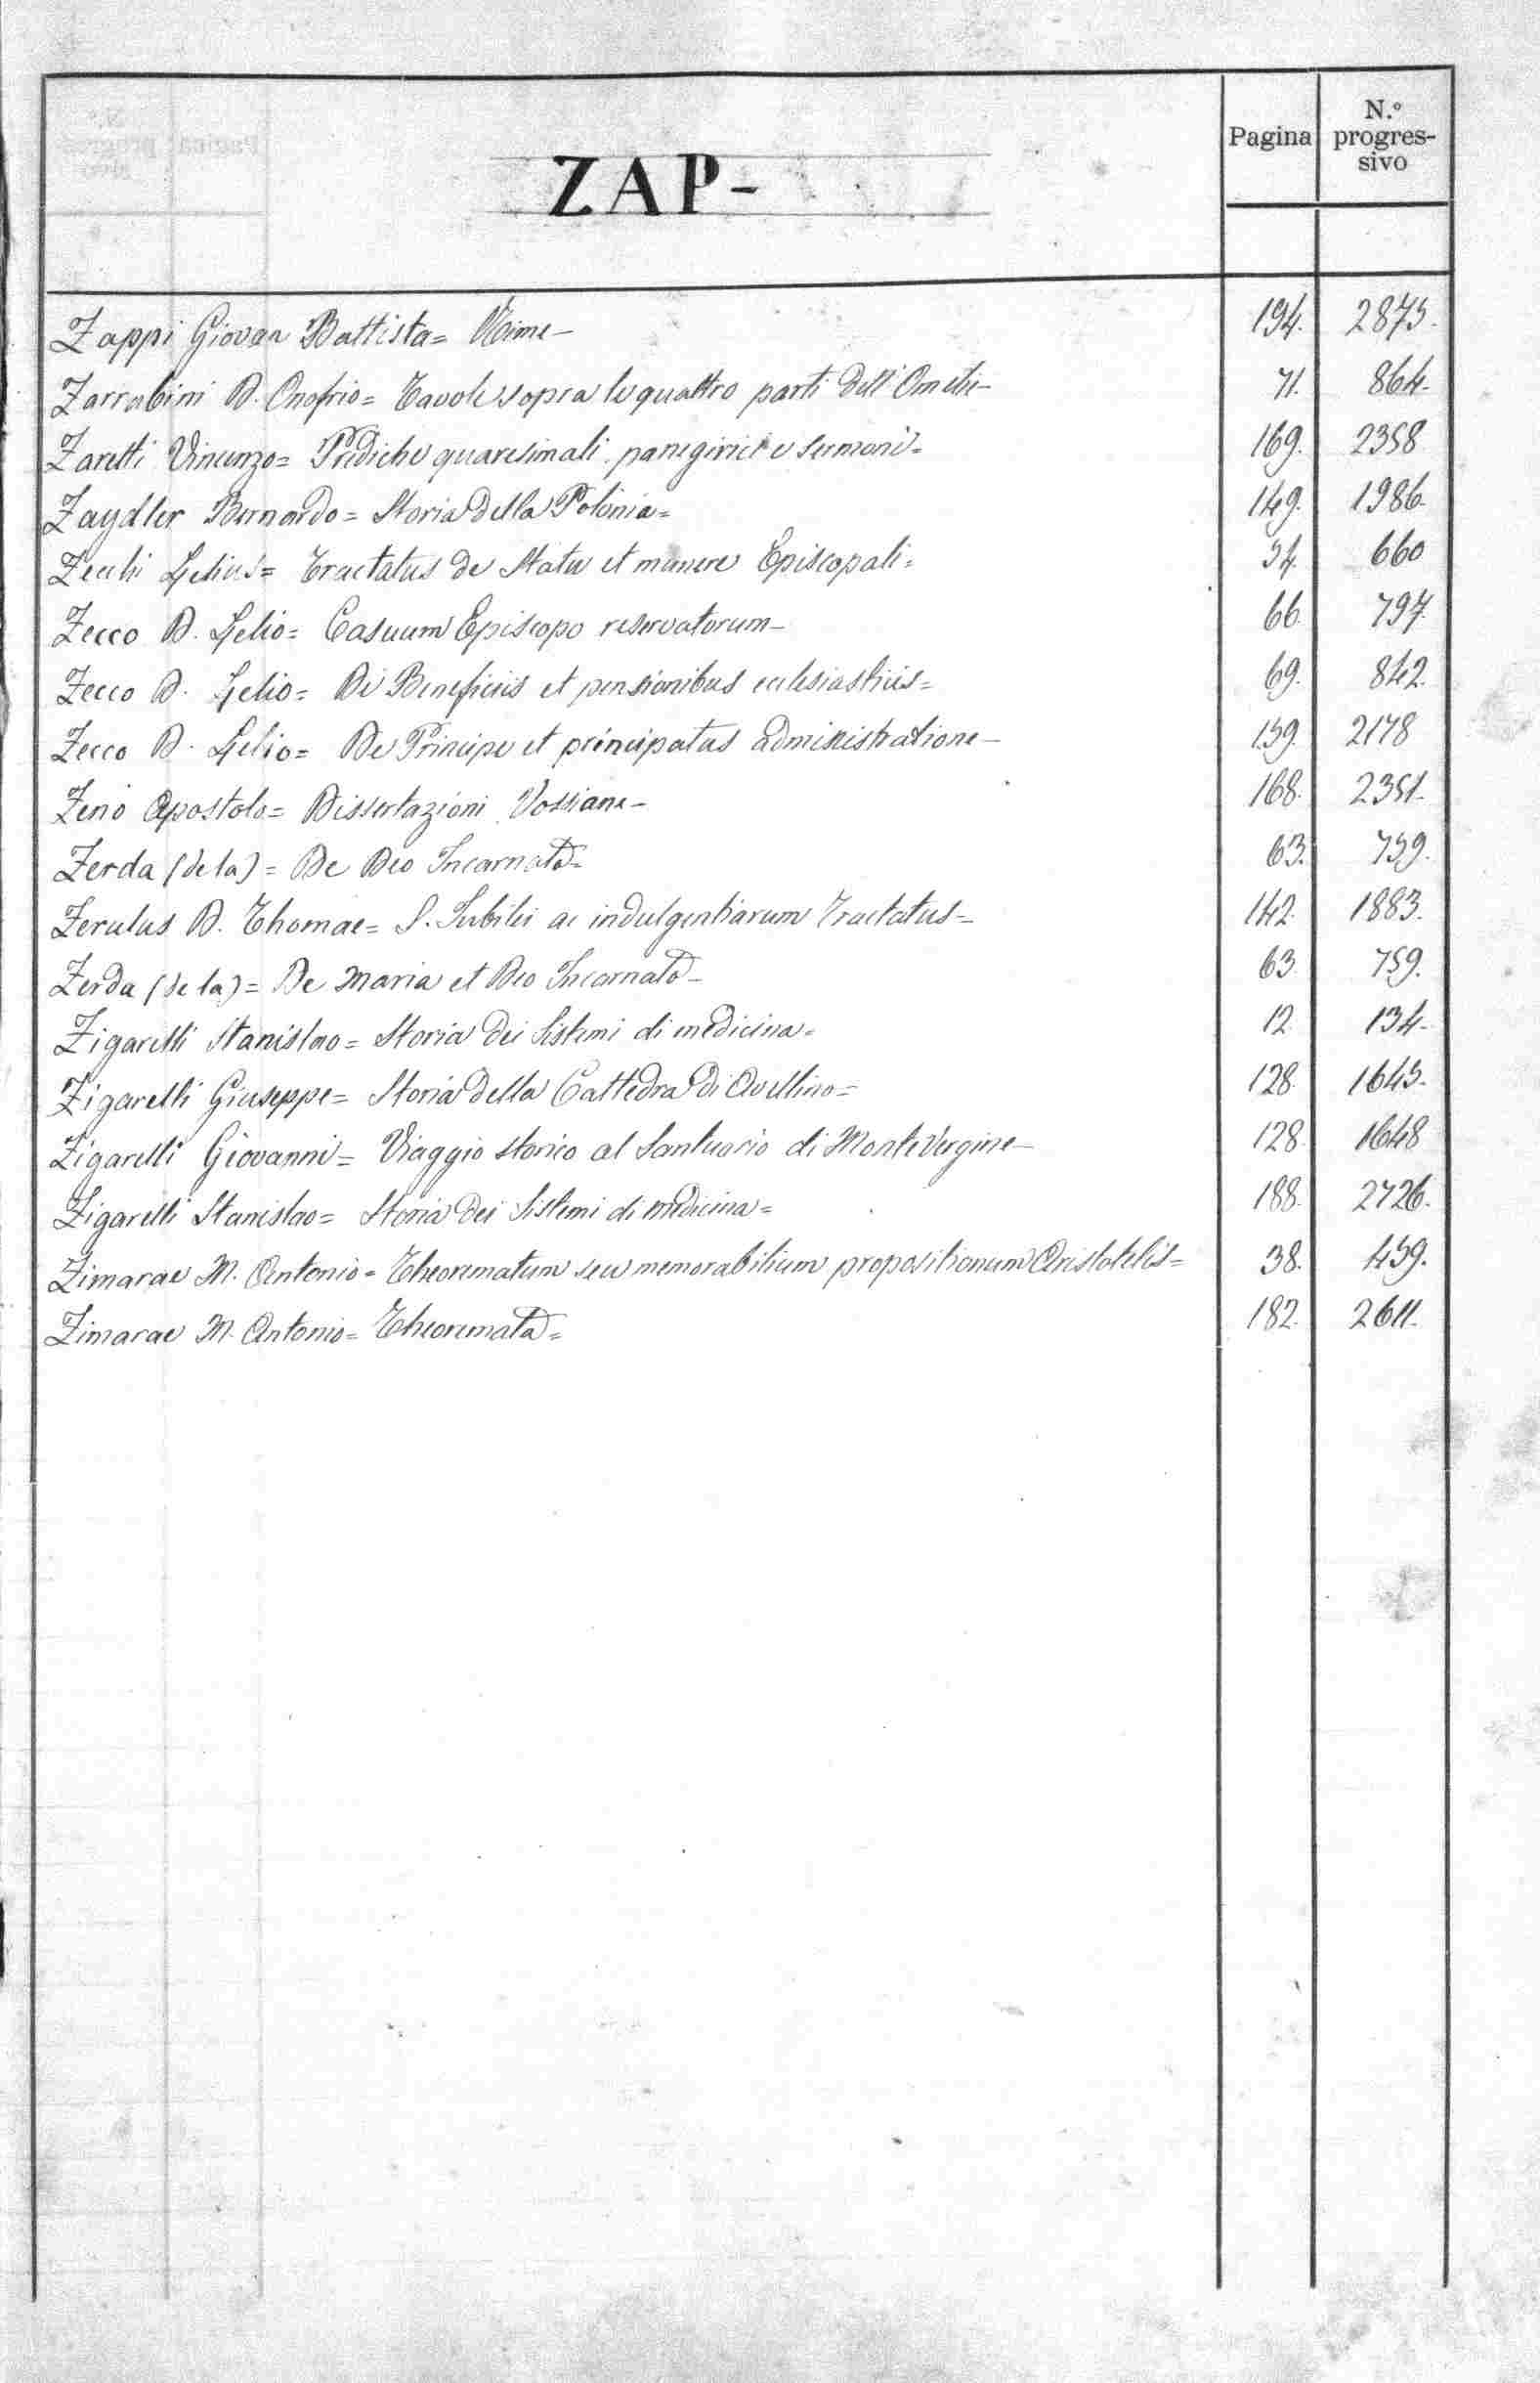 ZAP-
Pagina
N.º progres-
sivo
Zappi Giovan Battista= Rime- 194. 2873.
Zarrabini D. Onofrio= Tavole sopra le quattro parti dell' Omelie- 71. 864.
Zaretti Vincenzo= Prediche quaresimali. panegirici e sermoni= 169. 2358
Zaydler Bernardo= Storia della Polonia= 149. 1986.
Zecchi Lelius= Tractatus de Statu et munere Episcopali= 54. 660
Zecco D. Lelio= Casuum Episcopo reservatorum- 66. 797.
Zecco D. Lelio= De Beneficiis et pensionibus ecclesiasticis= 69. 842.
Zecco D. Lelio= De Principe et principatus administratione- 159. 2178
Zeno Apostolo= Dissertazioni Vossiane- 168. 2351.
Zerda (de la)= De Deo Incarnato= 63. 759.
Zerulus D. Thomae= S. Jubilei ac indulgentiarum Tractatus= 142. 1883.
Zerda (de la)= De Maria et Deo Incarnato- 63 759.
Zigarelli Stanislao= Storia dei Sistemi di medicina= 12. 134.
Zigarelli Giuseppe= Storia della Cattedra di Avellino= 128. 1643.
Zigarelli Giovanni= Viaggio storico al Santuario di MonteVergine- 128. 1648
Zigarelli Stanislao= Storia dei Sistemi di medicina= 188. 2726.
Zimarae M. Antonio= Theorematum seu memorabilium propositionum Aristotelis= 38. 459.
Zimarae M. Antonio= Theoremata= 182. 2611.